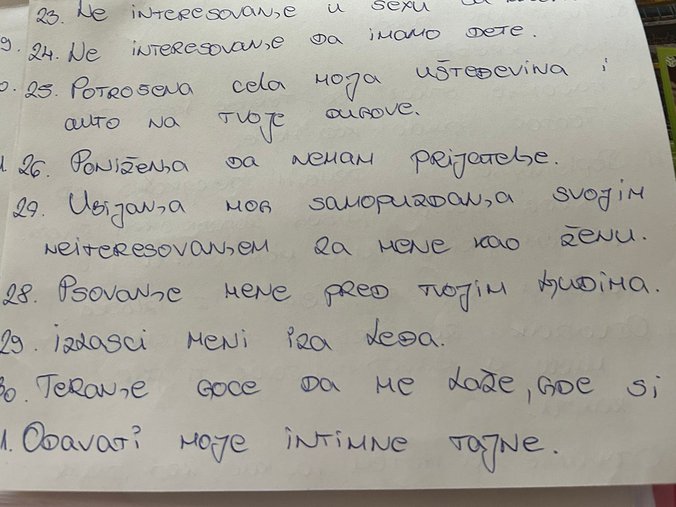 23. Ne interesovanje u sexu
9. 24. Ne interesovanje da imamo dete.
0. 25. Potrošena cela moja uštedevina i
auto na tvoje dugove.
1. 26. Poniženja da nemam prijatelje.
29. Ubijanja mog samopuzdanja svojim
neiteresovanjem za mene kao ženu.
28. Psovanje mene pred tvojim ljudima.
29. izlasci meni iza leđa.
30. Teranje Goce da me laže, gde si
1. Odavati moje intimne tajne.